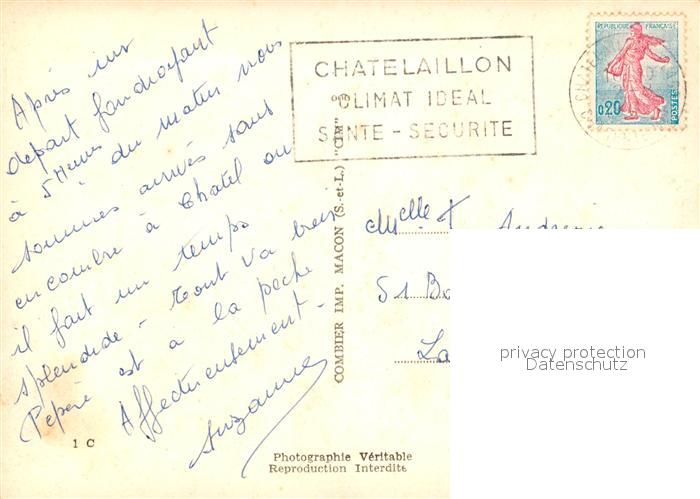 Après un
départ foudroyant
à 5 Heures du matin nous
sommes arrivés sans
encombre à Chatel ou
il fait un temps
splendide - Tout va bien
Pépère est a la pêche
Affectueusement -
Suzanne
1 C
CHATELAILLON
CLIMAT IDEAL
SANTE - SECURITE
REPUBLIQUE FRANÇAISE
0,20
POSTES
COMBIER IMP. MACON (S.-et-L.) "CIM"
Melle
51 Bo
La
privacy protection
Datenschutz
Photographie Véritable
Reproduction Interdite